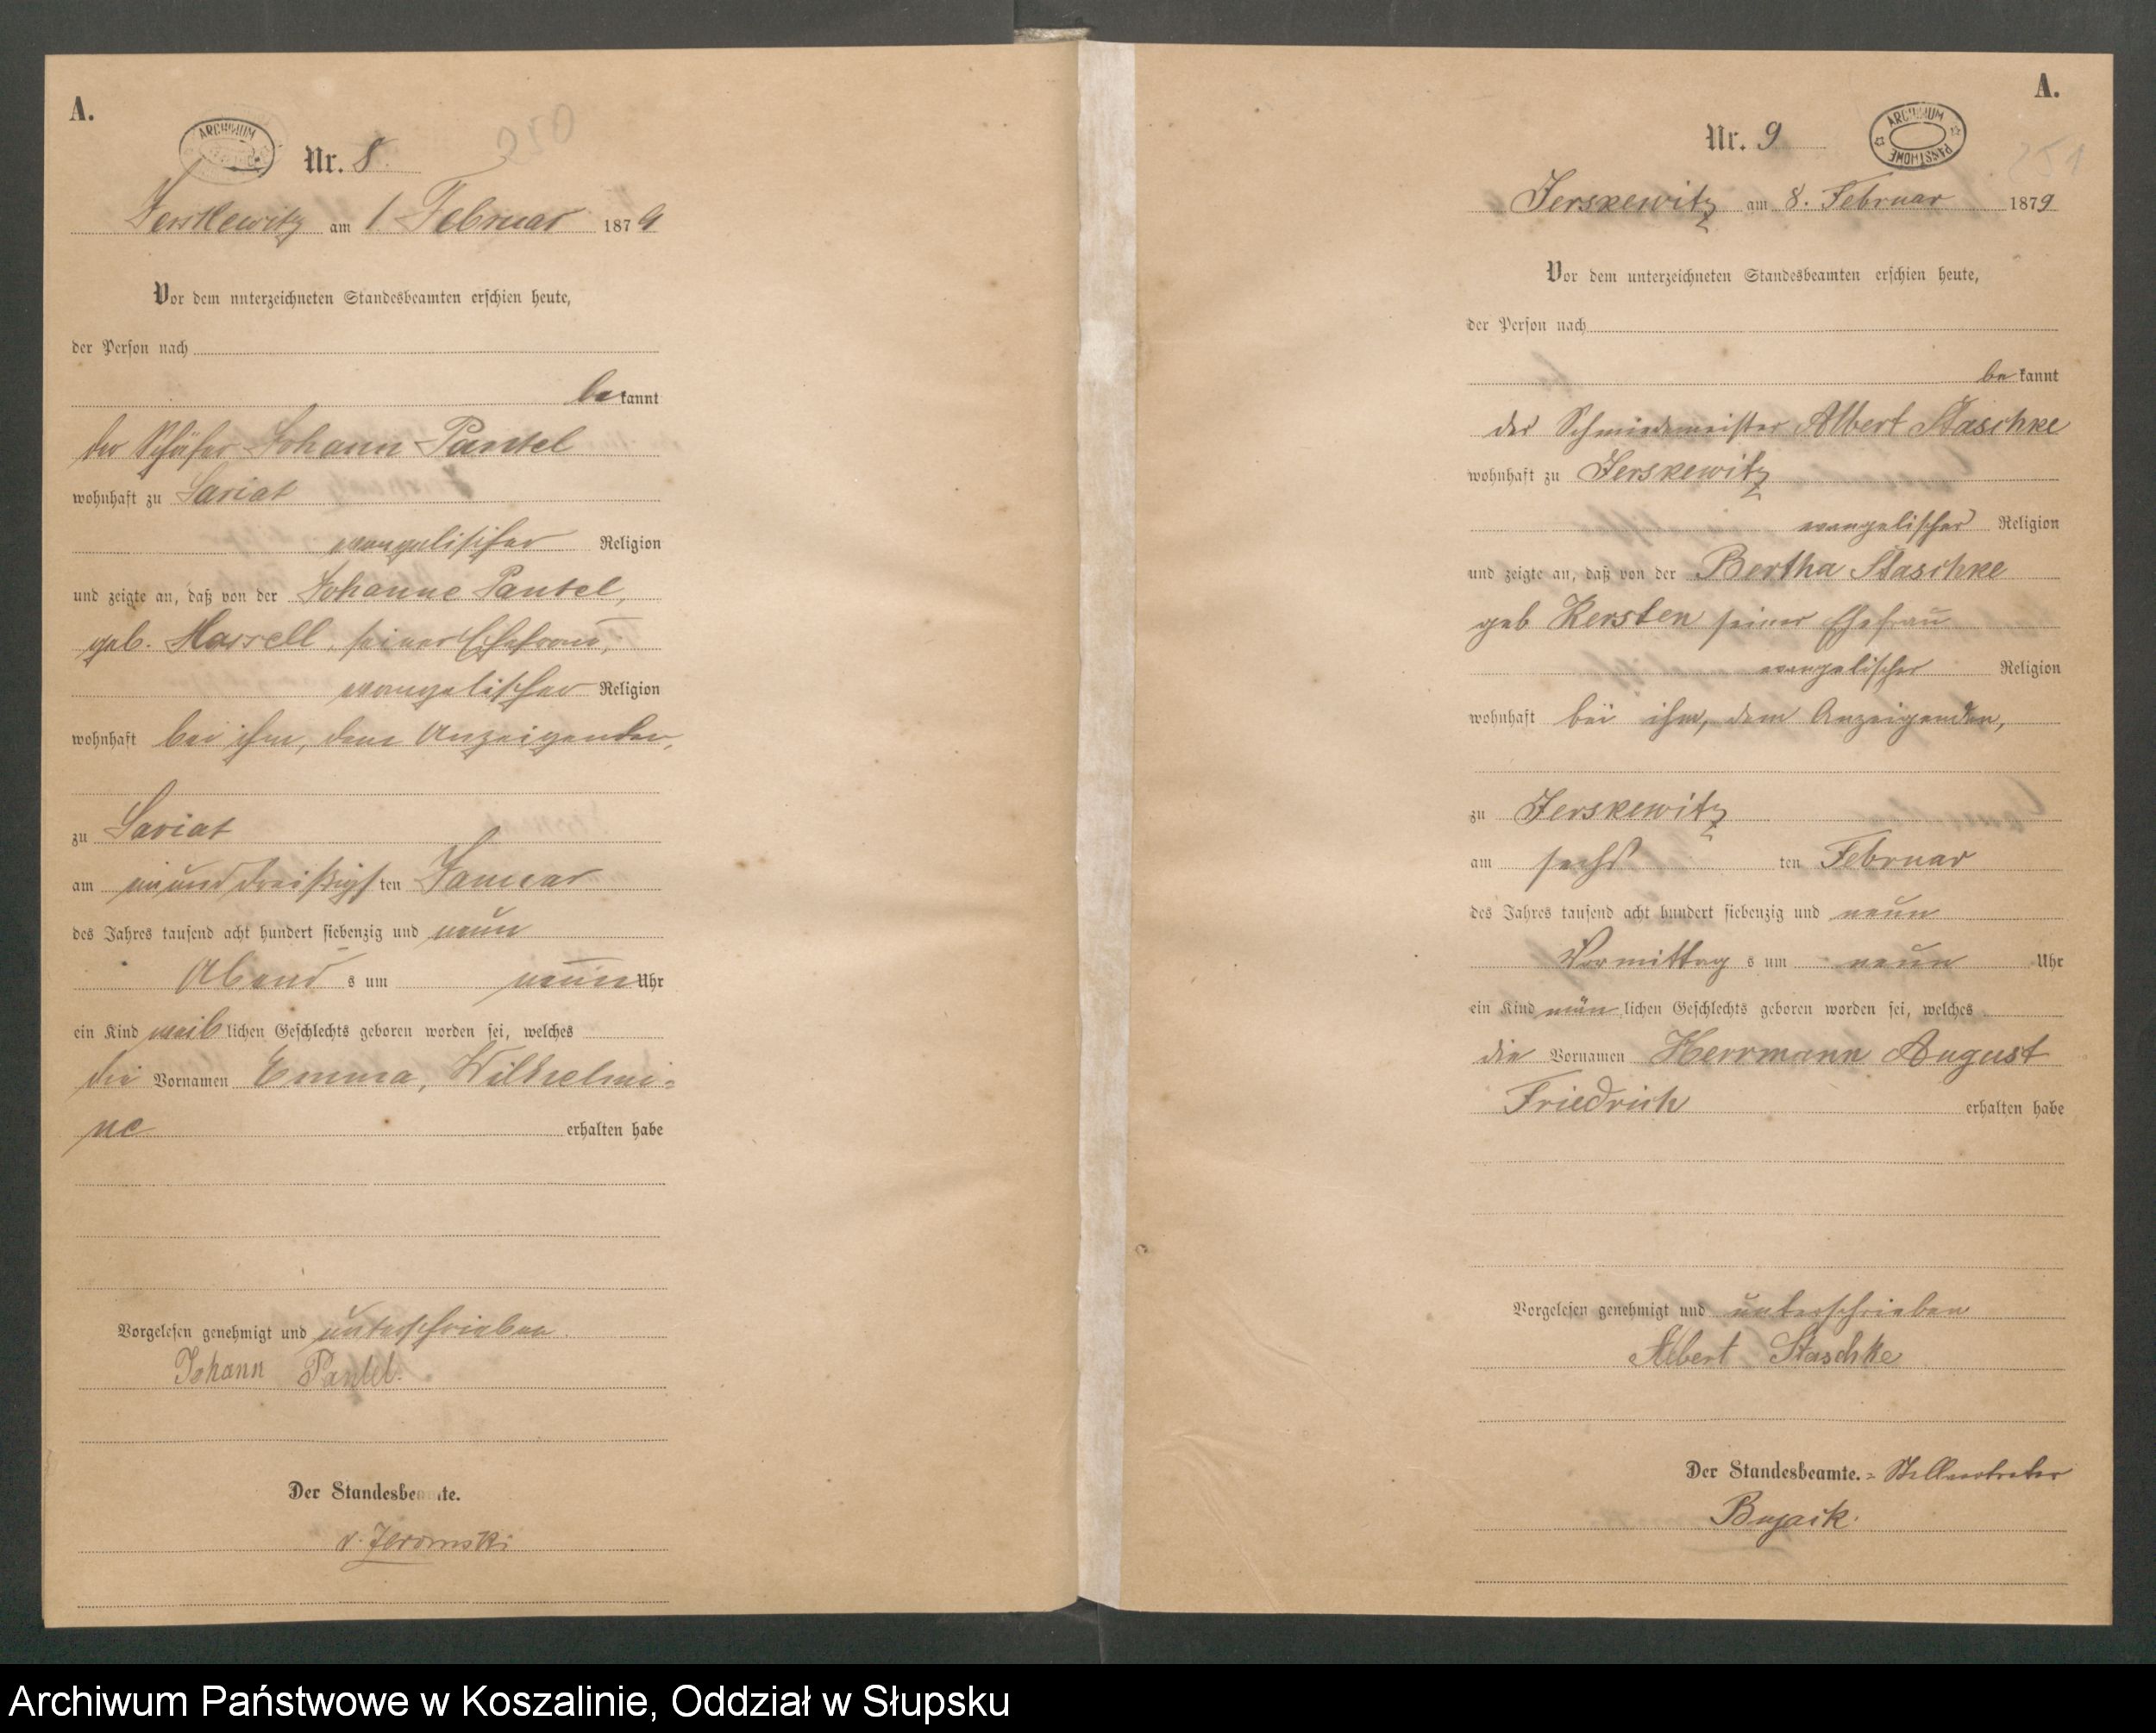 A.
ARCHIWUM
Nr. 8
250
Jerskewitz am 1. Februar 1879
Vor dem unterzeichneten Standesbeamten erschien heute,
der Person nach
bekannt
der Schäfer Johann Pantel
wohnhaft zu Lariat
evangelischer Religion
und zeigte an, daß von der Johanne Pantel,
geb. seiner Ehefrau,
evangelischer Religion
wohnhaft bei ihm, dem Anzeigenden,
zu Lariat
am einunddreißigsten Januar
des Jahres tausend acht hundert siebenzig und neun
Abends um neun Uhr
ein Kind weiblichen Geschlechts geboren worden sei, welches
die Vornamen Emma, Wilhelmi=
ne erhalten habe
Vorgelesen genehmigt und unterschrieben.
Johann Pantel.
Der Standesbeamte.
v. Jeromski
A.
Nr. 9
ARCHIWUM PAŃSTWOWE
251
Jerskewitz am 8. Februar 1879
Vor dem unterzeichneten Standesbeamten erschien heute,
der Person nach
bekannt
der Schmiedemeister Albert Staschke
wohnhaft zu Jerskewitz
evangelischer Religion
und zeigte an, daß von der Bertha Staschke
geb Kersten seiner Ehefrau
evangelischer Religion
wohnhaft bei ihm, dem Anzeigenden,
zu Jerskewitz
am sechsten Februar
des Jahres tausend acht hundert siebenzig und neun
Vormittags um neun Uhr
ein Kind mänlichen Geschlechts geboren worden sei, welches
die Vornamen Herrmann August
Friedrich erhalten habe
Vorgelesen genehmigt und unterschrieben
Albert Staschke
Der Standesbeamte.= Stellvertreter
Bujack.
Archiwum Państwowe w Koszalinie, Oddział w Słupsku